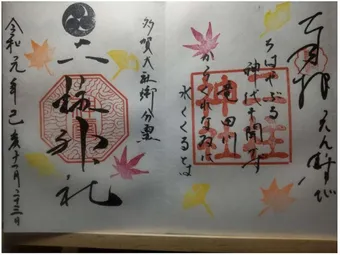 奉拝 えんむすび
ちはやぶる
神代も聞かず
竜田川
からくれなゐに
水くくるとは
二柱
神社
多賀大社御分霊
二柱神社
令和元年己亥十一月二十三日